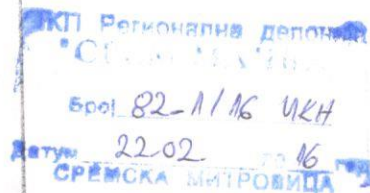 ЈКП Регионална депонија
Број 82-1/16 ЧКН
Датум 22.02 20 16 год
СРЕМСКА МИТРОВИЦА